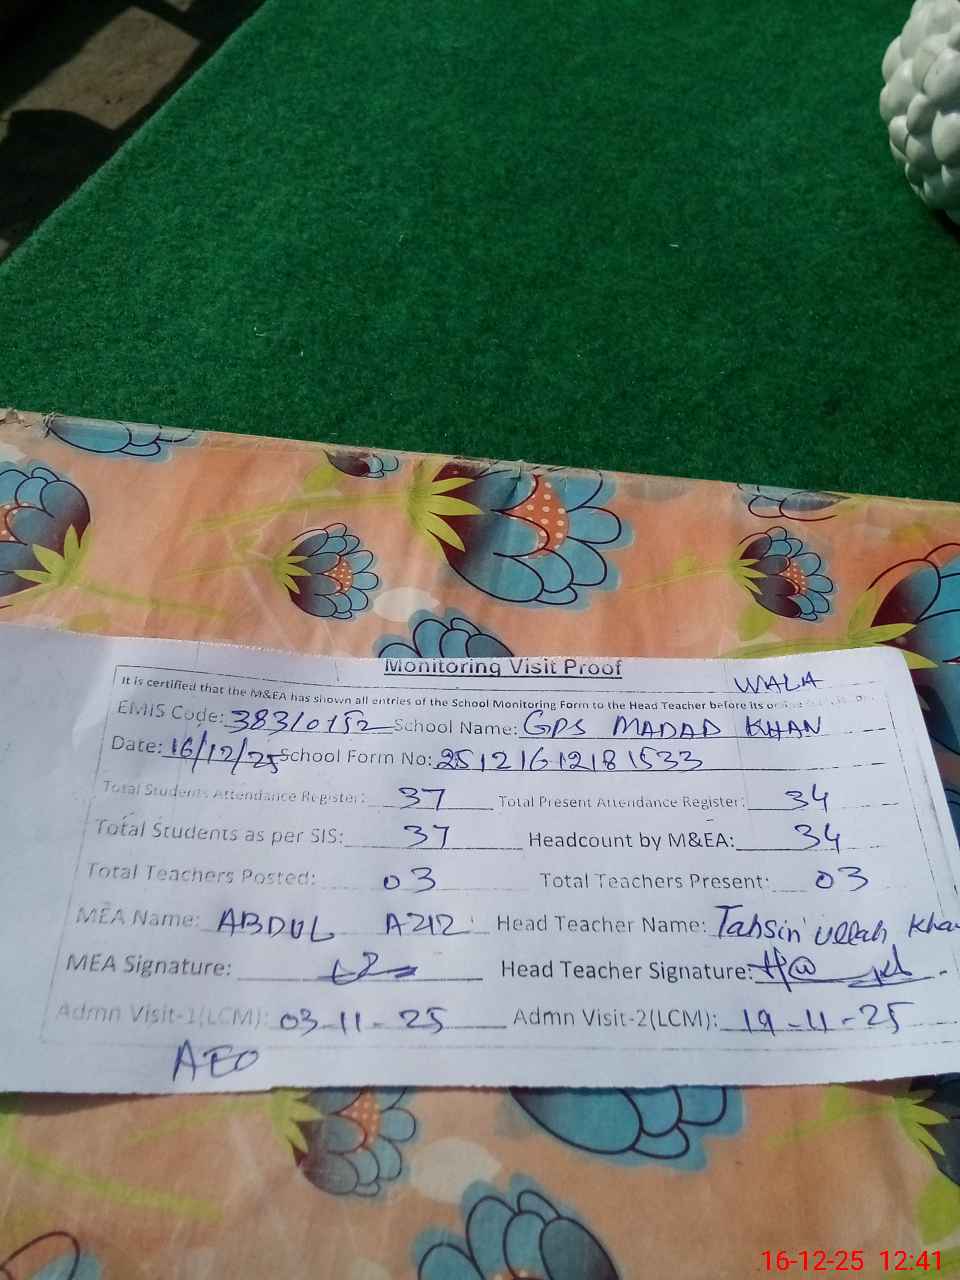 Monitoring Visit Proof
WALA
It is certified that the M&EA has shown all entries of the School Monitoring Form to the Head Teacher before its
EMIS Code: 38310152 School Name: GPS MADAD KHAN
Date: 16/12/25 School Form No: 25121612181533
Total Students Attendance Register: 37 Total Present Attendance Register: 34
Total Students as per SIS: 37 Headcount by M&EA: 34
Total Teachers Posted: 03 Total Teachers Present: 03
MEA Name: ABDUL AZIZ Head Teacher Name: Tahsin ullah Kha
MEA Signature: Head Teacher Signature:
Admn Visit-1(LCM): 03-11-25 Admn Visit-2(LCM): 19-11-25
AEO
16-12-25 12:41